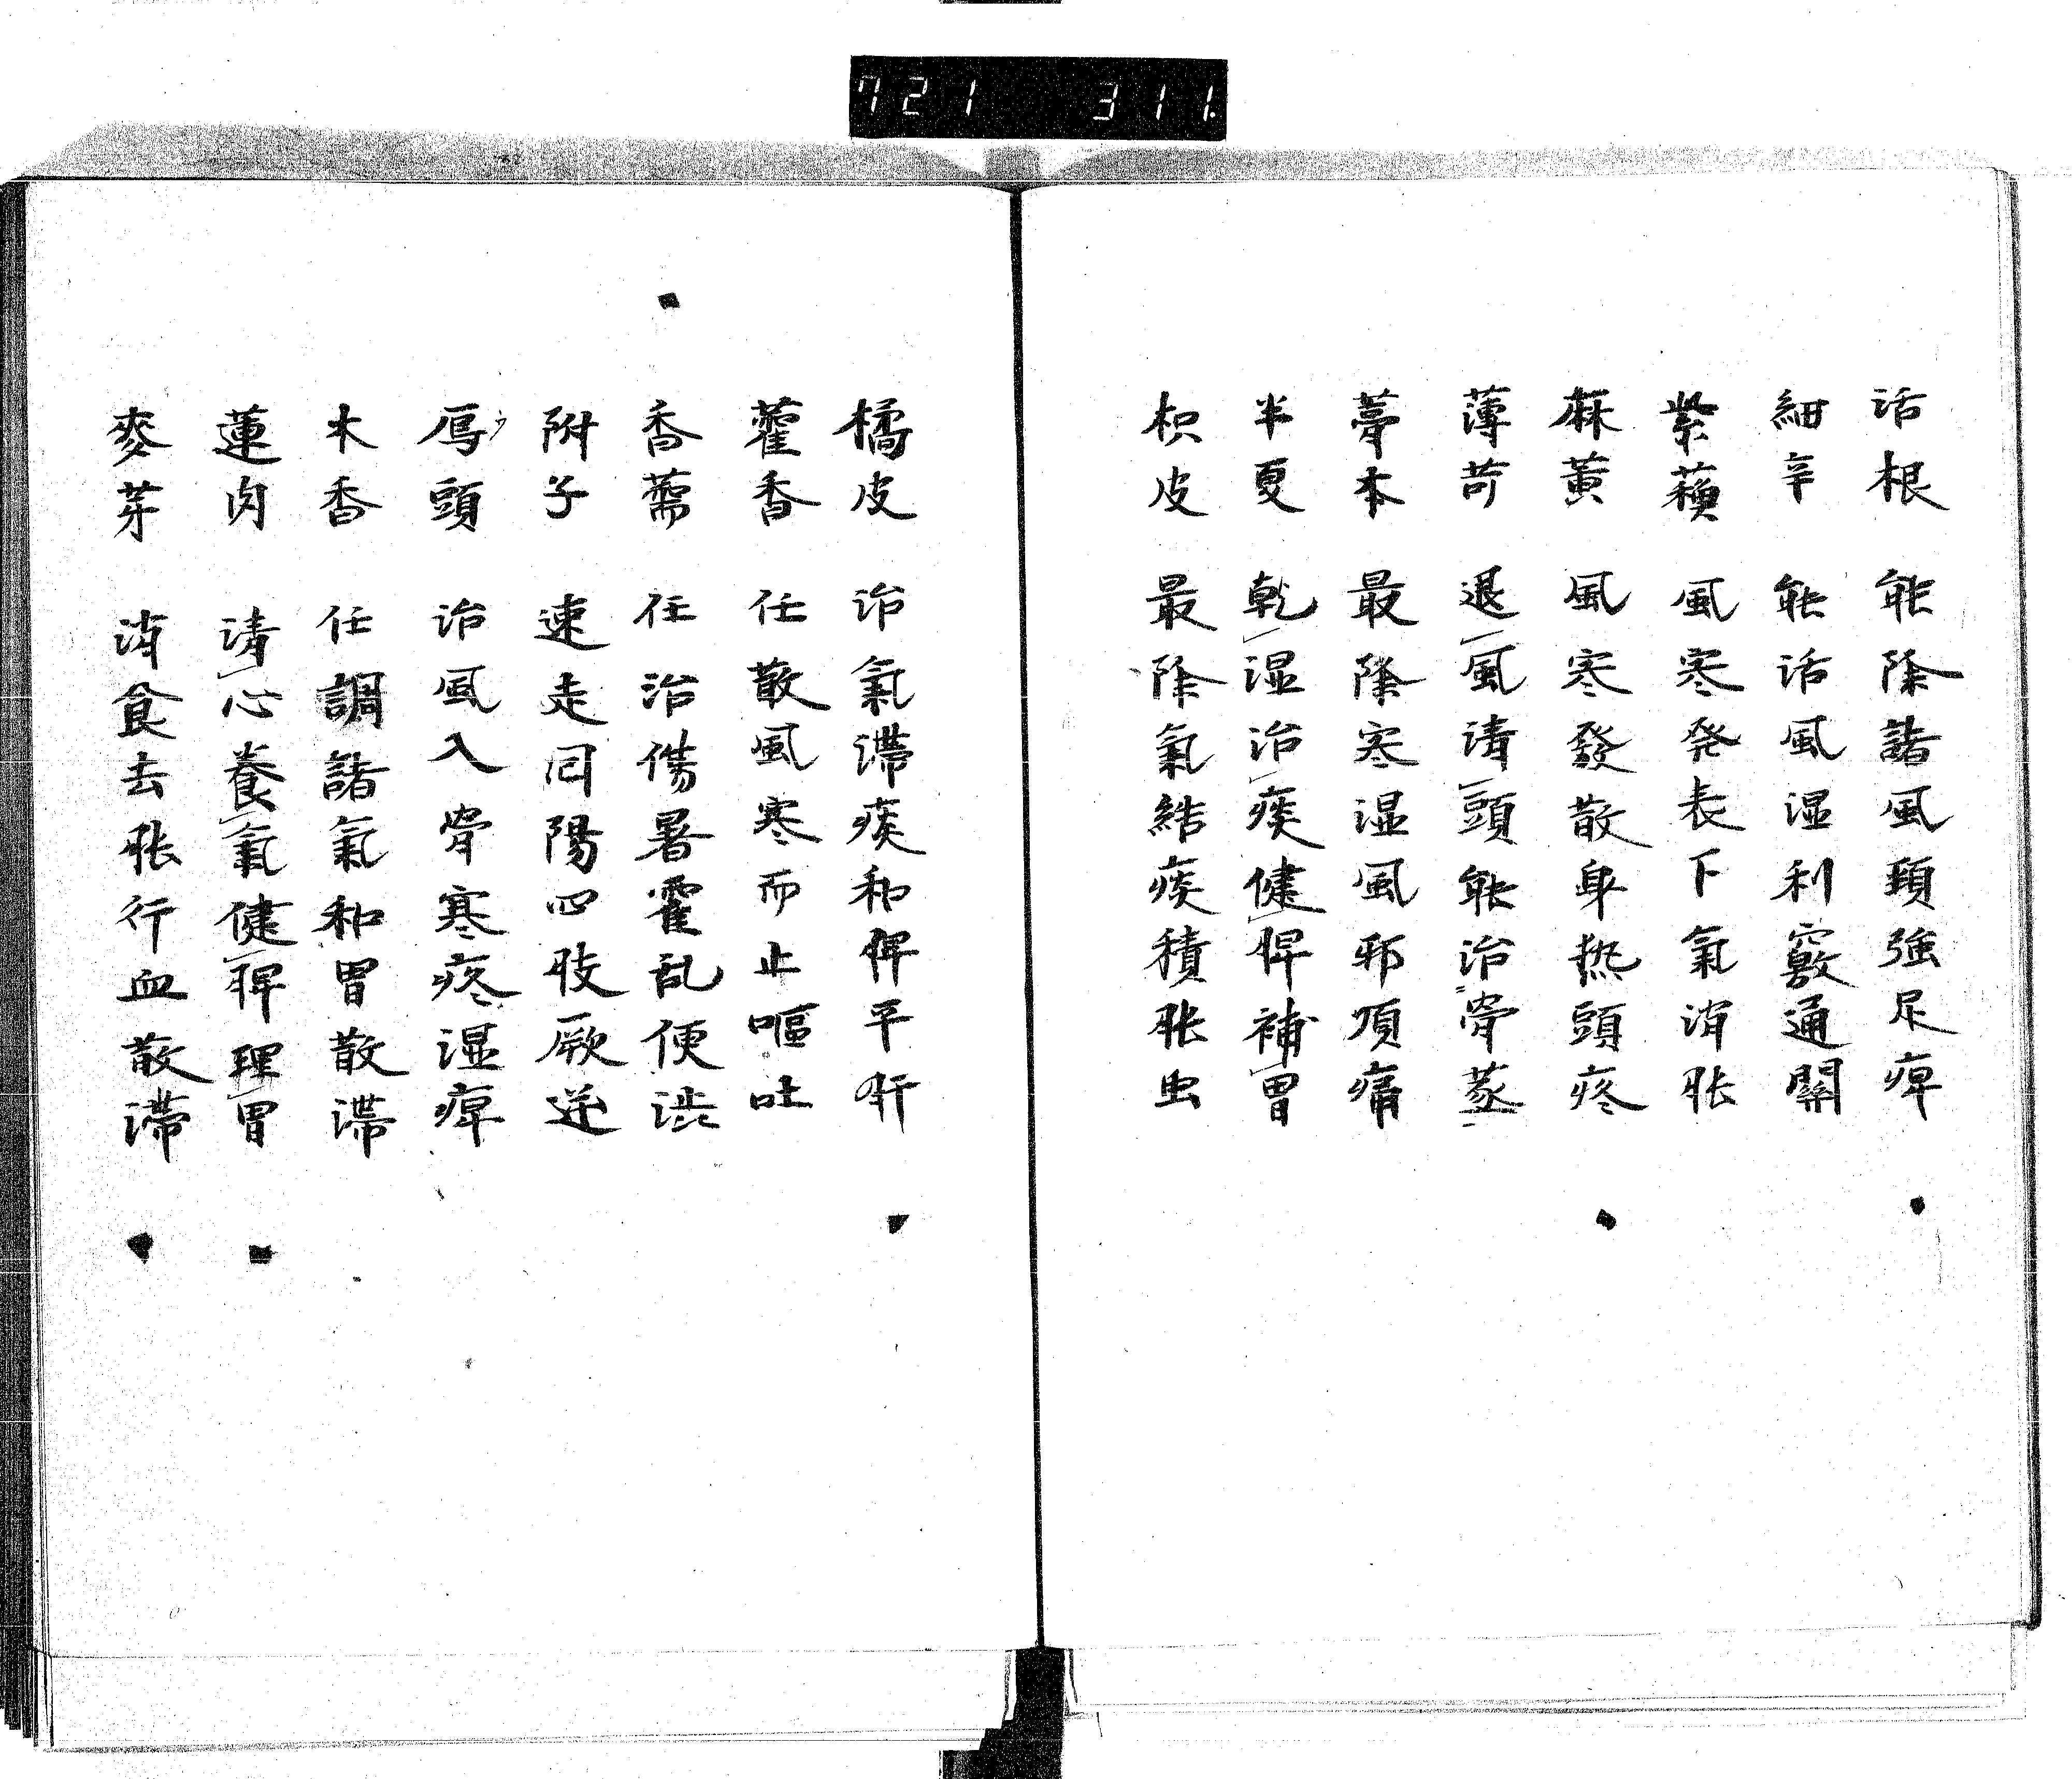 721 311.
活根 能除諸風頚強足痺
細辛 能活風湿利竅通関
紫蘓 風寒発表下氣消脹
麻黄 風寒發散身热頭疼
薄苛 退風清頭能治骨蒸
藁本 最除寒湿風邪項痛
半夏 乾湿治痰健脾補胃
枳皮 最除氣結痰積脹虫
橘皮 治氣滞痰和脾平肝
藿香 任散風寒而止嘔吐
香薷 任治傷暑霍乱便渋
附子 速走囘陽四肢厥逆
烏頭 治風入骨寒疼湿痺
木香 任調諸氣和胃散滞
蓮肉 清心養氣健脾理胃
麥芽 消食去脹行血散滞